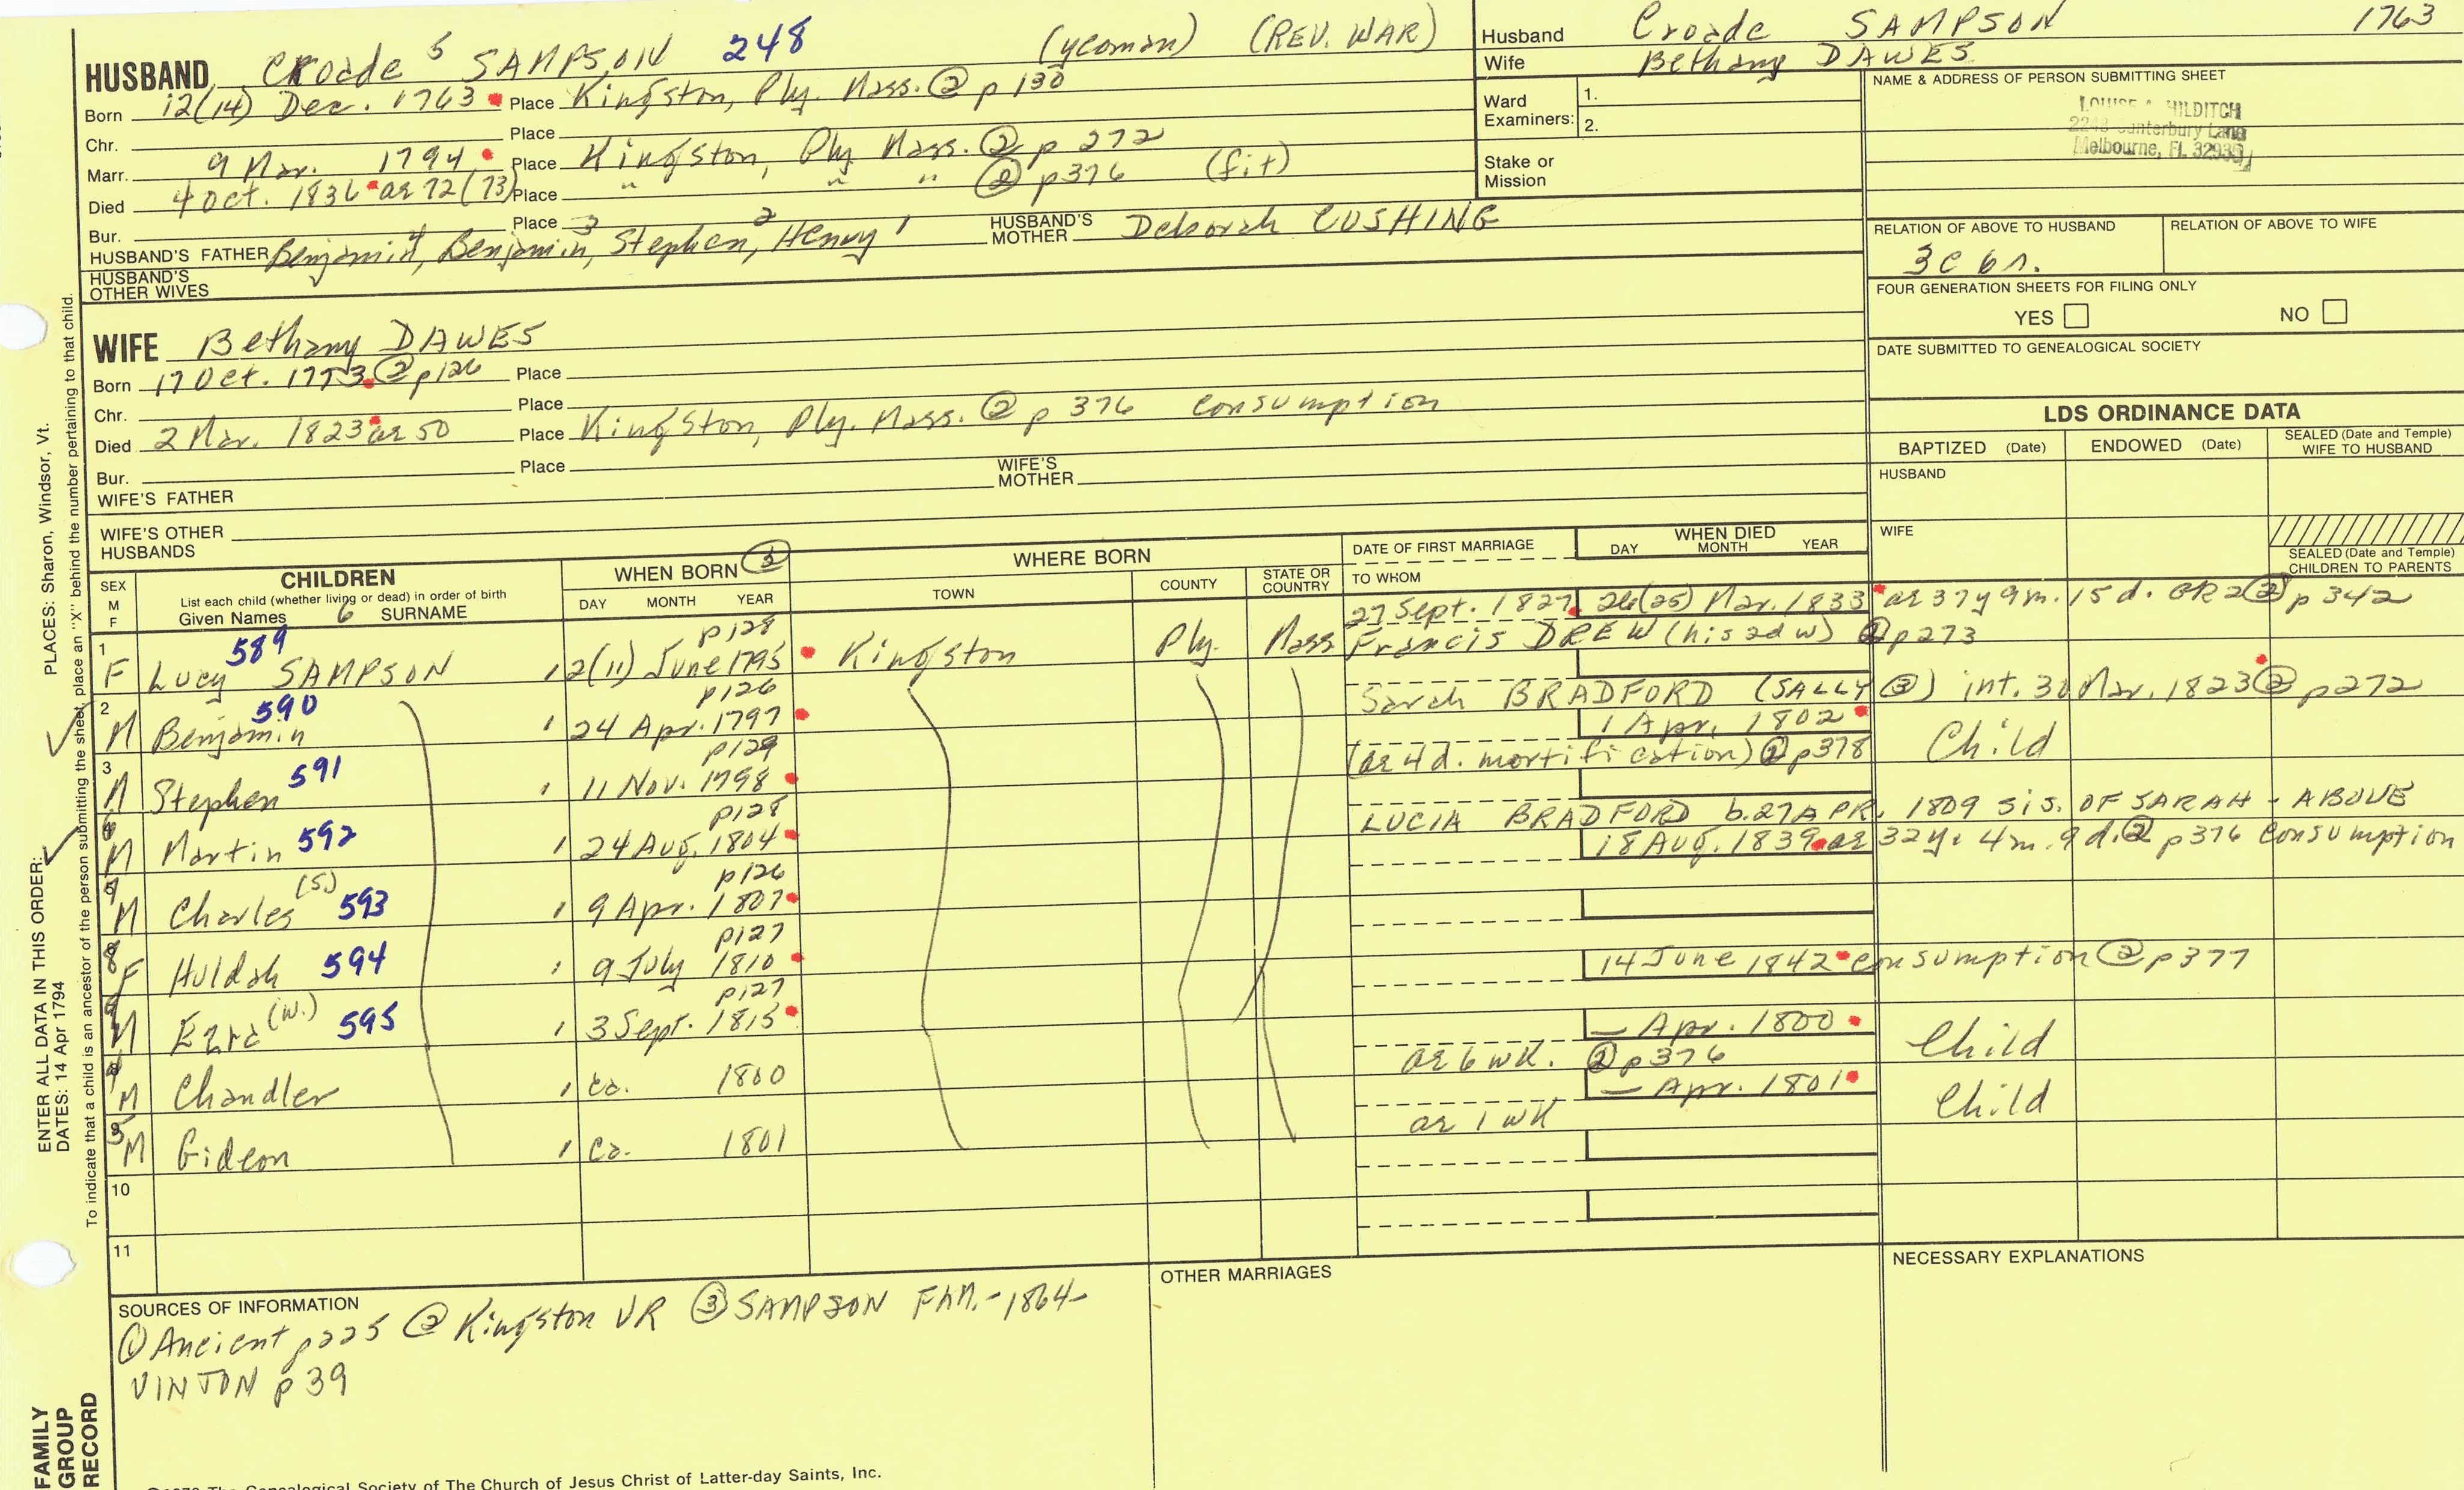 HUSBAND Croade 5 SAMPSON 248 (yeoman) (REV. WAR)
Born 12(14) Dec. 1763 Place Kingston, Ply. Mass. ② p 130
Chr. Place
Marr. 9 Mar. 1794 Place Kingston, Ply Mass. ② p 272
Died 4 Oct. 1836 ae 72 (73) Place " " " ② p376 (fit)
Bur. Place
HUSBAND'S FATHER Benjamin 4, Benjamin 3, Stephen 2, Henry 1 HUSBAND'S MOTHER Deborah CUSHING
HUSBAND'S OTHER WIVES
WIFE Bethany DAWES
Born 17 Oct. 1773 ② p126 Place
Chr. Place
Died 2 Mar. 1823 ae 50 Place Kingston, Ply. Mass. ② p 376 consumption
Bur. Place
WIFE'S FATHER WIFE'S MOTHER
WIFE'S OTHER HUSBANDS
Husband Croade SAMPSON 1763
Wife Bethany DAWES
Ward Examiners: 1.
2.
Stake or Mission
NAME & ADDRESS OF PERSON SUBMITTING SHEET
LOUISE A HILDITCH
Canterbury Lane
Melbourne, FL 32935
RELATION OF ABOVE TO HUSBAND RELATION OF ABOVE TO WIFE
3c 6r.
FOUR GENERATION SHEETS FOR FILING ONLY
YES NO
DATE SUBMITTED TO GENEALOGICAL SOCIETY
LDS ORDINANCE DATA
BAPTIZED (Date) ENDOWED (Date) SEALED (Date and Temple) WIFE TO HUSBAND
HUSBAND
WIFE
SEALED (Date and Temple) CHILDREN TO PARENTS
SEX M F CHILDREN WHEN BORN ③ WHERE BORN DATE OF FIRST MARRIAGE WHEN DIED
List each child (whether living or dead) in order of birth
Given Names 6 SURNAME DAY MONTH YEAR TOWN COUNTY STATE OR COUNTRY TO WHOM DAY MONTH YEAR
27 Sept. 1827 26(25) Mar. 1833 ae 37y 9m. 15 d. GR2 ② p 342
1 F Lucy SAMPSON 589 12(11) June 1795 p128 Kingston Ply. Mass Francis DREW (his 2d w) ② p273
2 M Benjamin 590 24 Apr. 1797 p126 Sarah BRADFORD (SALLY ③) int. 30 Mar. 1823 ② p272
1 Apr. 1802
3 M Stephen 591 11 Nov. 1798 p129 (ae 4 d. mortification) ② p378 Child
4 M Martin 592 24 Aug. 1804 p128 LUCIA BRADFORD b. 27 APR. 1809 sis. OF SARAH - ABOVE
18 Aug. 1839 ae 32 y. 4 m. 9 d. ② p376 consumption
M Charles (S.) 593 9 Apr. 1807 p126
8 F Huldah 594 9 July 1810 p127
14 June 1842 consumption ② p377
M Ezra (W.) 595 3 Sept. 1815 p127
— Apr. 1800
M Chandler ca. 1800 ae 6 wk. ② p376 Child
— Apr. 1801
5 M Gideon ca. 1801 ae 1 wk Child
10
11
SOURCES OF INFORMATION
① Ancient p225 ② Kingston VR ③ SAMPSON FAM. - 1864 -
VINTON p 39
OTHER MARRIAGES
NECESSARY EXPLANATIONS
©1978 The Genealogical Society of The Church of Jesus Christ of Latter-day Saints, Inc.
FAMILY GROUP RECORD
ENTER ALL DATA IN THIS ORDER:
DATES: 14 Apr 1794
PLACES: Sharon, Windsor, Vt.
To indicate that a child is an ancestor of the person submitting the sheet, place an "X" behind the number pertaining to that child.